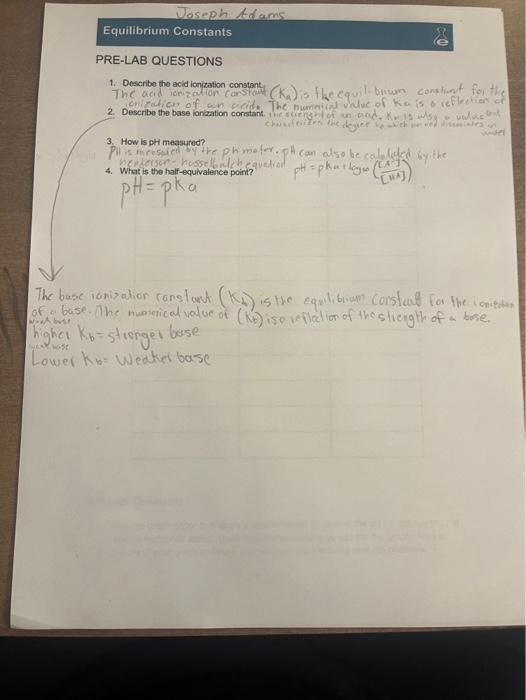 Joseph Adams
Equilibrium Constants
PRE-LAB QUESTIONS
1. Describe the acid ionization constant.
The acid ionization constant (Ka) is the equilibrium constant for the
ionization of an acid. The numerical value of Ka is a reflection of
2. Describe the base ionization constant. the strength of an acid. Ka is also a value that
characterizes the degree to which an acid dissociates in
water
3. How is pH measured?
PH is measured by the ph meter. pH can also be calculated by the
henderson-hasselbalch equation pH = pKa + log10 ([A-]/[HA])
4. What is the half-equivalence point?
pH = pKa
The base ionization constant (Kb) is the equilibrium constant for the ionization
of a base. The numerical value of (Kb) is a reflection of the strength of a base.
weak base
higher Kb = stronger base
weak base
Lower Kb = Weaker base